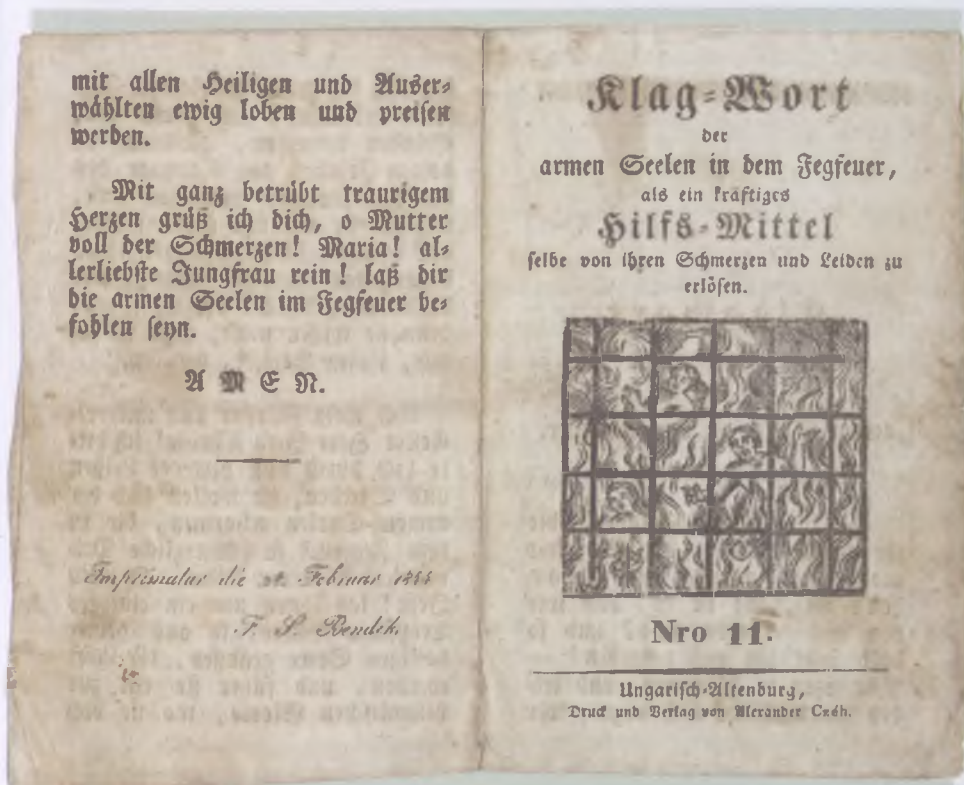 mit allen Heiligen und Auser-
wählten ewig loben und preisen
werden.
Mit ganz betrübt traurigem
Herzen grüß ich dich, o Mutter
voll der Schmerzen! Maria! al-
lerliebste Jungfrau rein! laß dir
die armen Seelen im Fegfeuer be-
fohlen seyn.
AMEN.
Imprimatur die Februar
F. S. Bendik.
Klag-Wort
der
armen Seelen in dem Fegfeuer,
als ein kräftiges
Hilfs-Mittel
selbe von ihren Schmerzen und Leiden zu
erlösen.
Nro 11.
Ungarisch-Altenburg,
Druck und Verlag von Alexander Czéh.